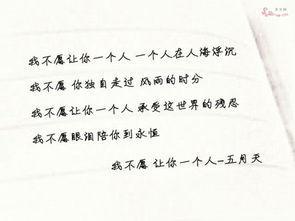 我不愿让你一个人 一个人在人海浮沉
我不愿 你独自走过 风雨的时分
我不愿让你一个人 承受这世界的残忍
我不愿眼泪陪你到永恒
我不愿 让你一个人-五月天